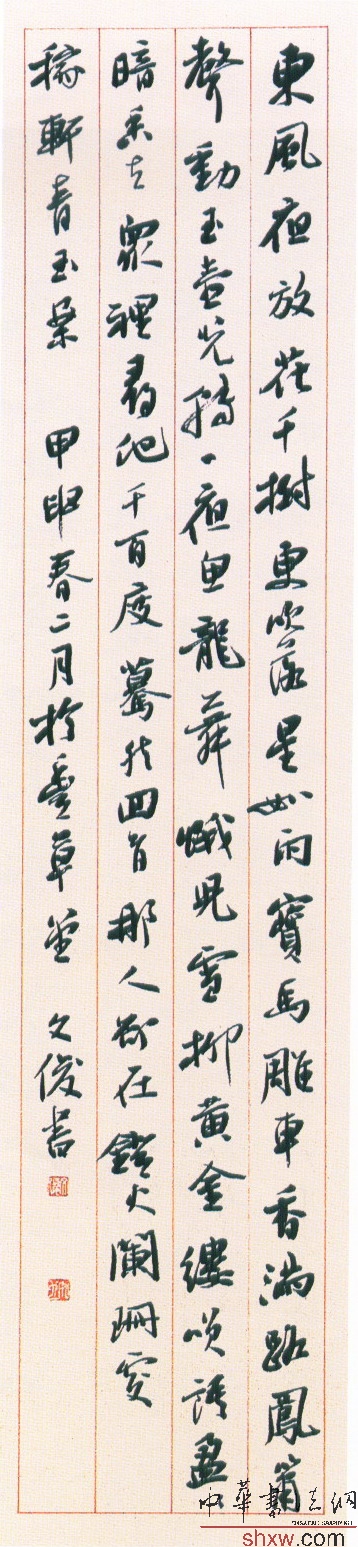 東風夜放花千樹更吹落星如雨寶馬雕車香滿路鳳簫
聲動玉壺光轉一夜魚龍舞蛾兒雪柳黃金縷笑語盈
暗香去眾裡尋他千百度驀然回首那人卻在鐙火闌珊處
稼軒青玉案 甲申春二月於草堂 文俊書
中華書法網
shxw.com